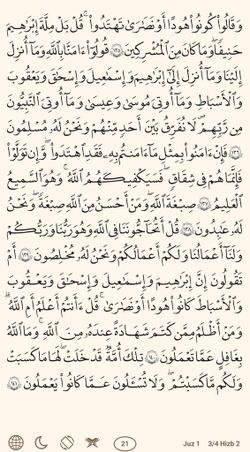 وَقَالُوا۟ كُونُوا۟ هُودًا أَوْ نَصَٰرَىٰ تَهْتَدُوا۟ ۗ قُلْ بَلْ مِلَّةَ إِبْرَٰهِيمَ
حَنِيفًا ۖ وَمَا كَانَ مِنَ ٱلْمُشْرِكِينَ قُولُوٓا۟ ءَامَنَّا بِٱللَّهِ وَمَآ أُنزِلَ
إِلَيْنَا وَمَآ أُنزِلَ إِلَىٰٓ إِبْرَٰهِيمَ وَإِسْمَٰعِيلَ وَإِسْحَٰقَ وَيَعْقُوبَ
وَٱلْأَسْبَاطِ وَمَآ أُوتِىَ مُوسَىٰ وَعِيسَىٰ وَمَآ أُوتِىَ ٱلنَّبِيُّونَ
مِن رَّبِّهِمْ لَا نُفَرِّقُ بَيْنَ أَحَدٍ مِّنْهُمْ وَنَحْنُ لَهُۥ مُسْلِمُونَ
فَإِنْ ءَامَنُوا۟ بِمِثْلِ مَآ ءَامَنتُم بِهِۦ فَقَدِ ٱهْتَدَوا۟ ۖ وَّإِن تَوَلَّوْا۟
فَإِنَّمَا هُمْ فِى شِقَاقٍ ۖ فَسَيَكْفِيكَهُمُ ٱللَّهُ ۚ وَهُوَ ٱلسَّمِيعُ
ٱلْعَلِيمُ صِبْغَةَ ٱللَّهِ ۖ وَمَنْ أَحْسَنُ مِنَ ٱللَّهِ صِبْغَةً ۖ وَنَحْنُ
لَهُۥ عَٰبِدُونَ قُلْ أَتُحَآجُّونَنَا فِى ٱللَّهِ وَهُوَ رَبُّنَا وَرَبُّكُمْ
وَلَنَآ أَعْمَٰلُنَا وَلَكُمْ أَعْمَٰلُكُمْ وَنَحْنُ لَهُۥ مُخْلِصُونَ أَمْ
تَقُولُونَ إِنَّ إِبْرَٰهِيمَ وَإِسْمَٰعِيلَ وَإِسْحَٰقَ وَيَعْقُوبَ
وَٱلْأَسْبَاطَ كَانُوا۟ هُودًا أَوْ نَصَٰرَىٰ ۗ قُلْ ءَأَنتُمْ أَعْلَمُ أَمِ ٱللَّهُ ۗ
وَمَنْ أَظْلَمُ مِمَّن كَتَمَ شَهَٰدَةً عِندَهُۥ مِنَ ٱللَّهِ ۗ وَمَا ٱللَّهُ
بِغَٰفِلٍ عَمَّا تَعْمَلُونَ تِلْكَ أُمَّةٌ قَدْ خَلَتْ ۖ لَهَا مَا كَسَبَتْ
وَلَكُم مَّا كَسَبْتُمْ ۖ وَلَا تُسْـَٔلُونَ عَمَّا كَانُوا۟ يَعْمَلُونَ
21 Juz 1 3/4 Hizb 2